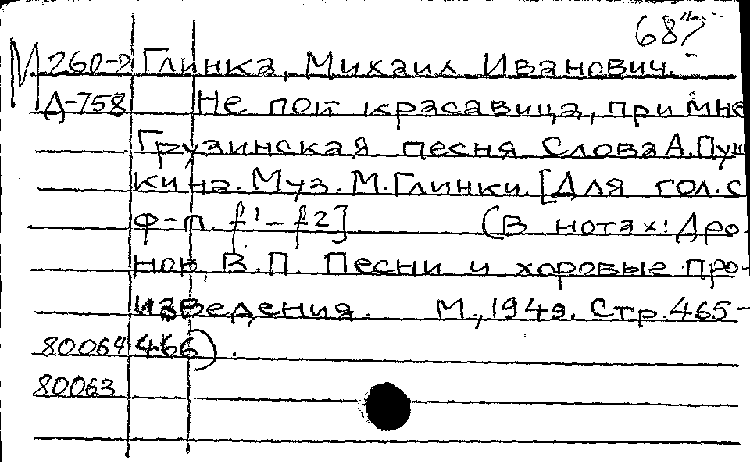 687
М 260-2 Глинка, Михаил Иванович.
Д-758 Не пой красавица, при мне
Грузинская песня Слова А.Пуш
кина. Муз. М.Глинки. [Для гол. с
ф-п. f1-f2] (В нотах: Дро-
нов, В.П. Песни и хоровые про-
изведения. М., 1949. Стр. 465-
80064 466).
80063